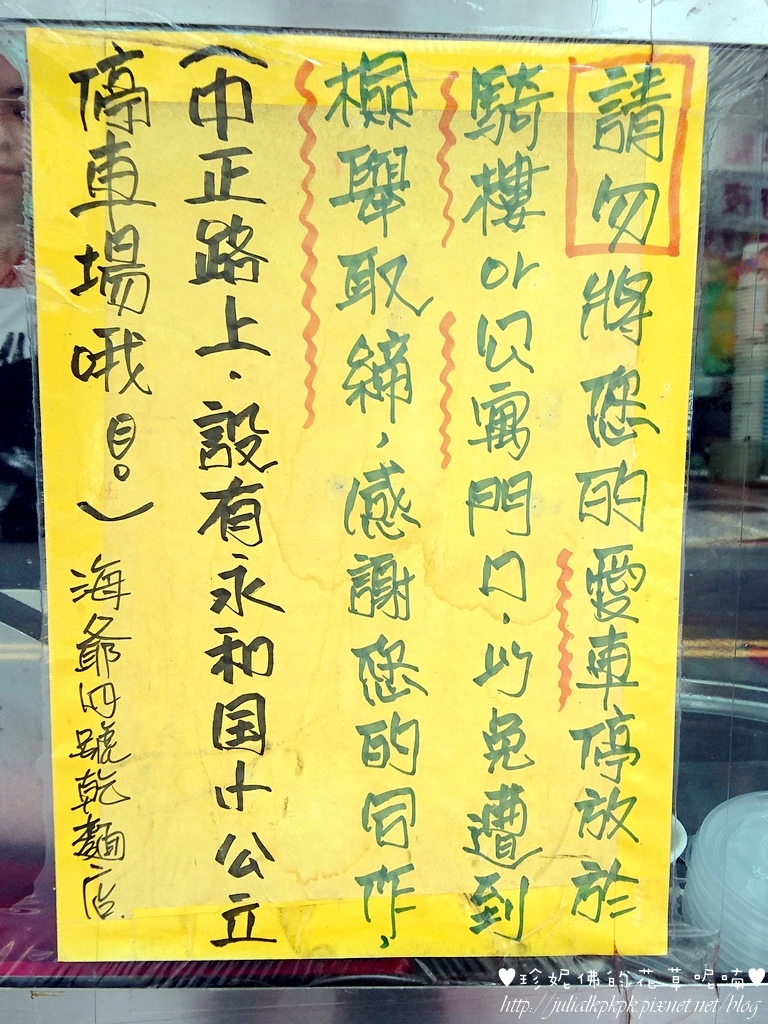 請勿將您的愛車停放於
騎樓or公寓門口，以免遭到
檢舉取締，感謝您的合作，
(中正路上，設有永和国小公立
停車場哦！)
海爺號乾麵店.
♥珍妮佛的花草呢喃♥
http://julialkpkpk.pixnet.net/blog